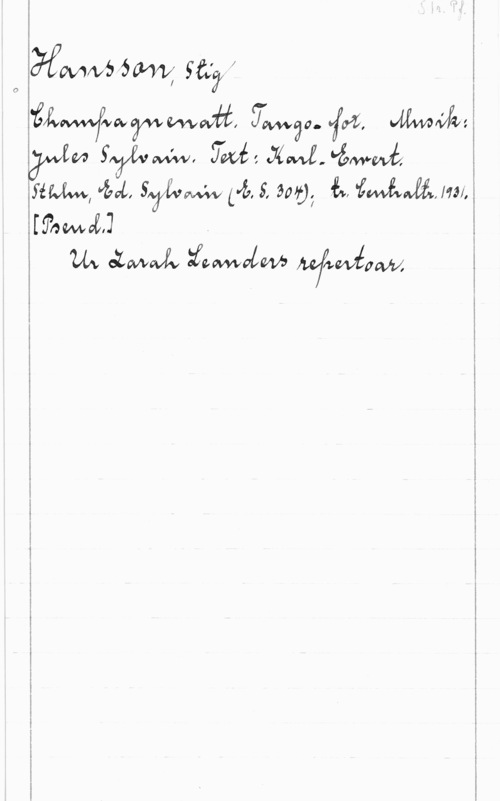 Str. Pf.
Hansson, Stig
Champagnenatt. Tango-fox. Musik:
Jules Sylvain. Text: Karl-Ewert.
Sthlm, Ed. Sylvain (E. S. 304); tr. Centraltr. 1931.
[Pseud.]
Ur Zarah Leanders repertoar.